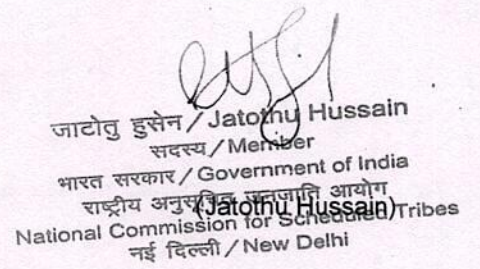 जाटोतु हुसेन / Jatothu Hussain
सदस्य / Member
भारत सरकार / Government of India
राष्ट्रीय अनुसूचित जनजाति आयोग
(Jatothu Hussain)
National Commission for Scheduled Tribes
नई दिल्ली / New Delhi